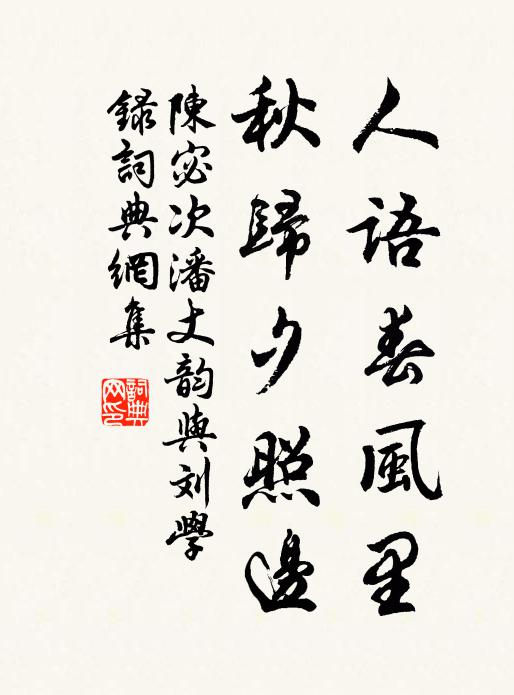 人語春風里
秋歸夕照邊
陳宓次潘丈韵與刘學
録詞典網集
詞典网印